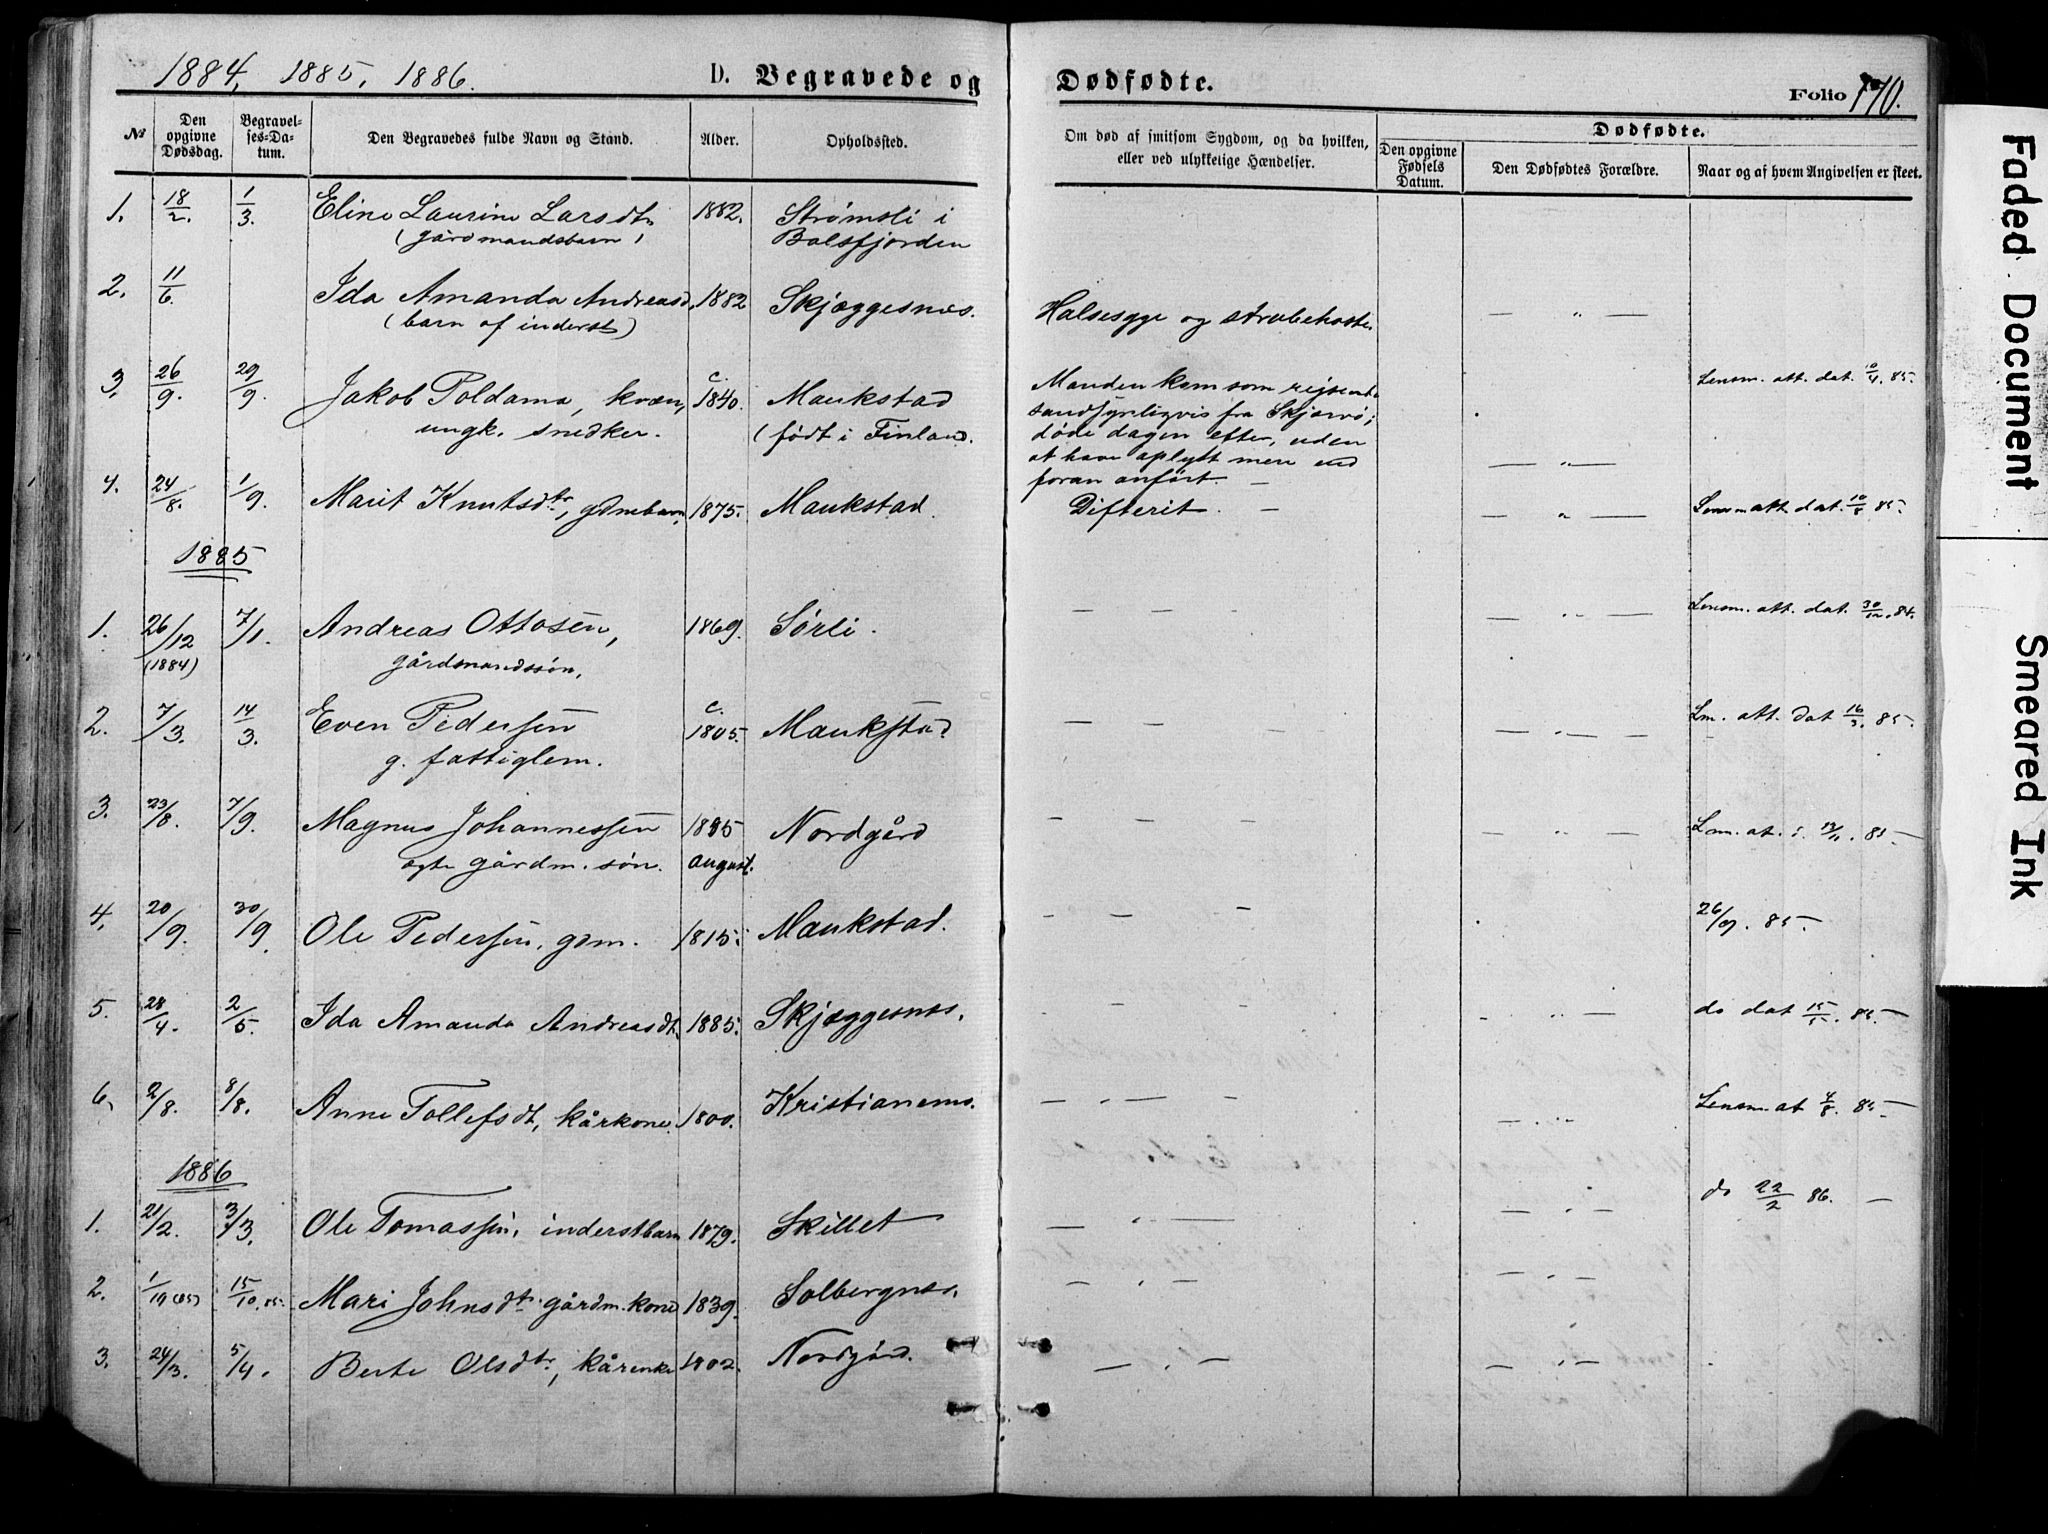 1884, 1885, 1886.
D. Begravede og Dødfødte.
Folio 170.
№ Den opgivne Dødsdag. Begravelses-Datum. Den Begravedes fulde Navn og Stand. Alder. Opholdssted. Om død af smitsom Sygdom, og da hvilken, eller ved ulykkelige Hændelser. Dødfødte. Den opgivne Fødsels Datum. Den Dødfødtes Forældre. Naar og af hvem Angivelsen er skeet.
1. 18/2. 1/3. Eline Laurine Larsdt. 1882. Strømsli i
(gårdmandsbarn) Balsfjorden
2. 11/6. Ida Amanda Andreasd. 1882 Skjæggesnes. Halsesyge og strubehoste. — " —
(barn af inderst)
3, 26/9. 29/9. Jakob Poldama, kvæn, c. 1840. Maukstad Manden kom som rejsende Lensm. att. dat. 10/4. 85.
ungk. snedker. (født i Finland. sandsynligvis fra Skjærvø;
døde dagen efter, uden
at have oplyst mere end — " —
foran anført. —
4. 24/8. 1/9. Marit Knutsdtr, gdmebarn, 1875. Maukstad. Difterit. — — " — Lensm att dat. 10/8 85.
1885
1. 26/12 7/1. Andreas Ottosen, 1869. Sørli. — — — — " — Lensm. att. dat. 30/12. 84.
(1884) gårdmandssøn.
2. 7/3. 14/3. Even Pedersen c. 1805. Maukstad — — — — " — Lm. att. dat 16/3. 85.
g. fattiglem.
3. 23/8. 7/9. Magnus Johannessen 1885 Nordgård — — — — " — Lm. at. 85—
ægte gårdm. søn. august.
4. 20/9. 30/9. Ole Pedersen, gdm. 1815. Maukstad. — — — 26/9. 85—.
5. 28/4. 2/5. Ida Amanda Andreasdt. 1885. Skjæggesnes. — — - " — do dat 15/5. 85.—
6. 2/8. 8/8. Anne Tollefsdt, kårkone. 1800. Kristianems. — " — — " — Lensm. at 4/8. 85—
1886
1. 21/2. 3/3. Ole Tomassen, inderstbarn 1879. Skillet — " — — " — do 22/2 86. —
2. 1/10 (85) 15/10. 85. Mari Johnsdtr. gårdm. kone 1839. Solbergnes. — " — — " —
3. 24/3. 5/4. Berte Olsdtr, kårenke 1802. Nordgård. — " — — " —
Faded Document
Smeared Ink